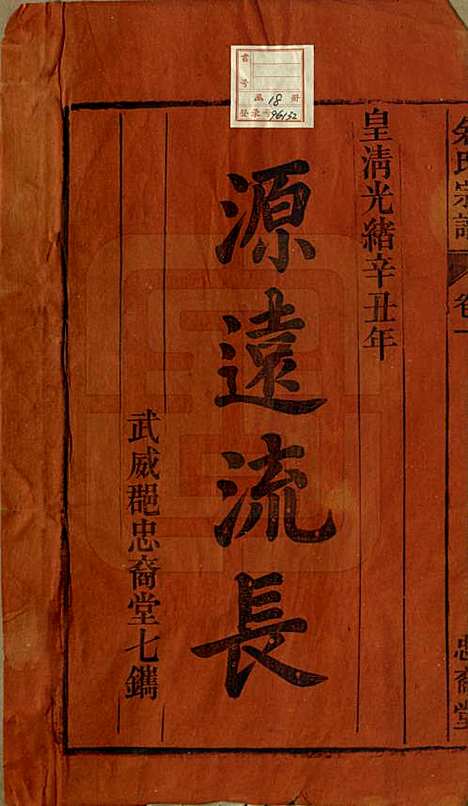 氏宗譜
卷一
忠裔堂
皇清光緒辛丑年
源遠流長
武威郡忠裔堂七鐫
書号
函 18 册
登录号 96152